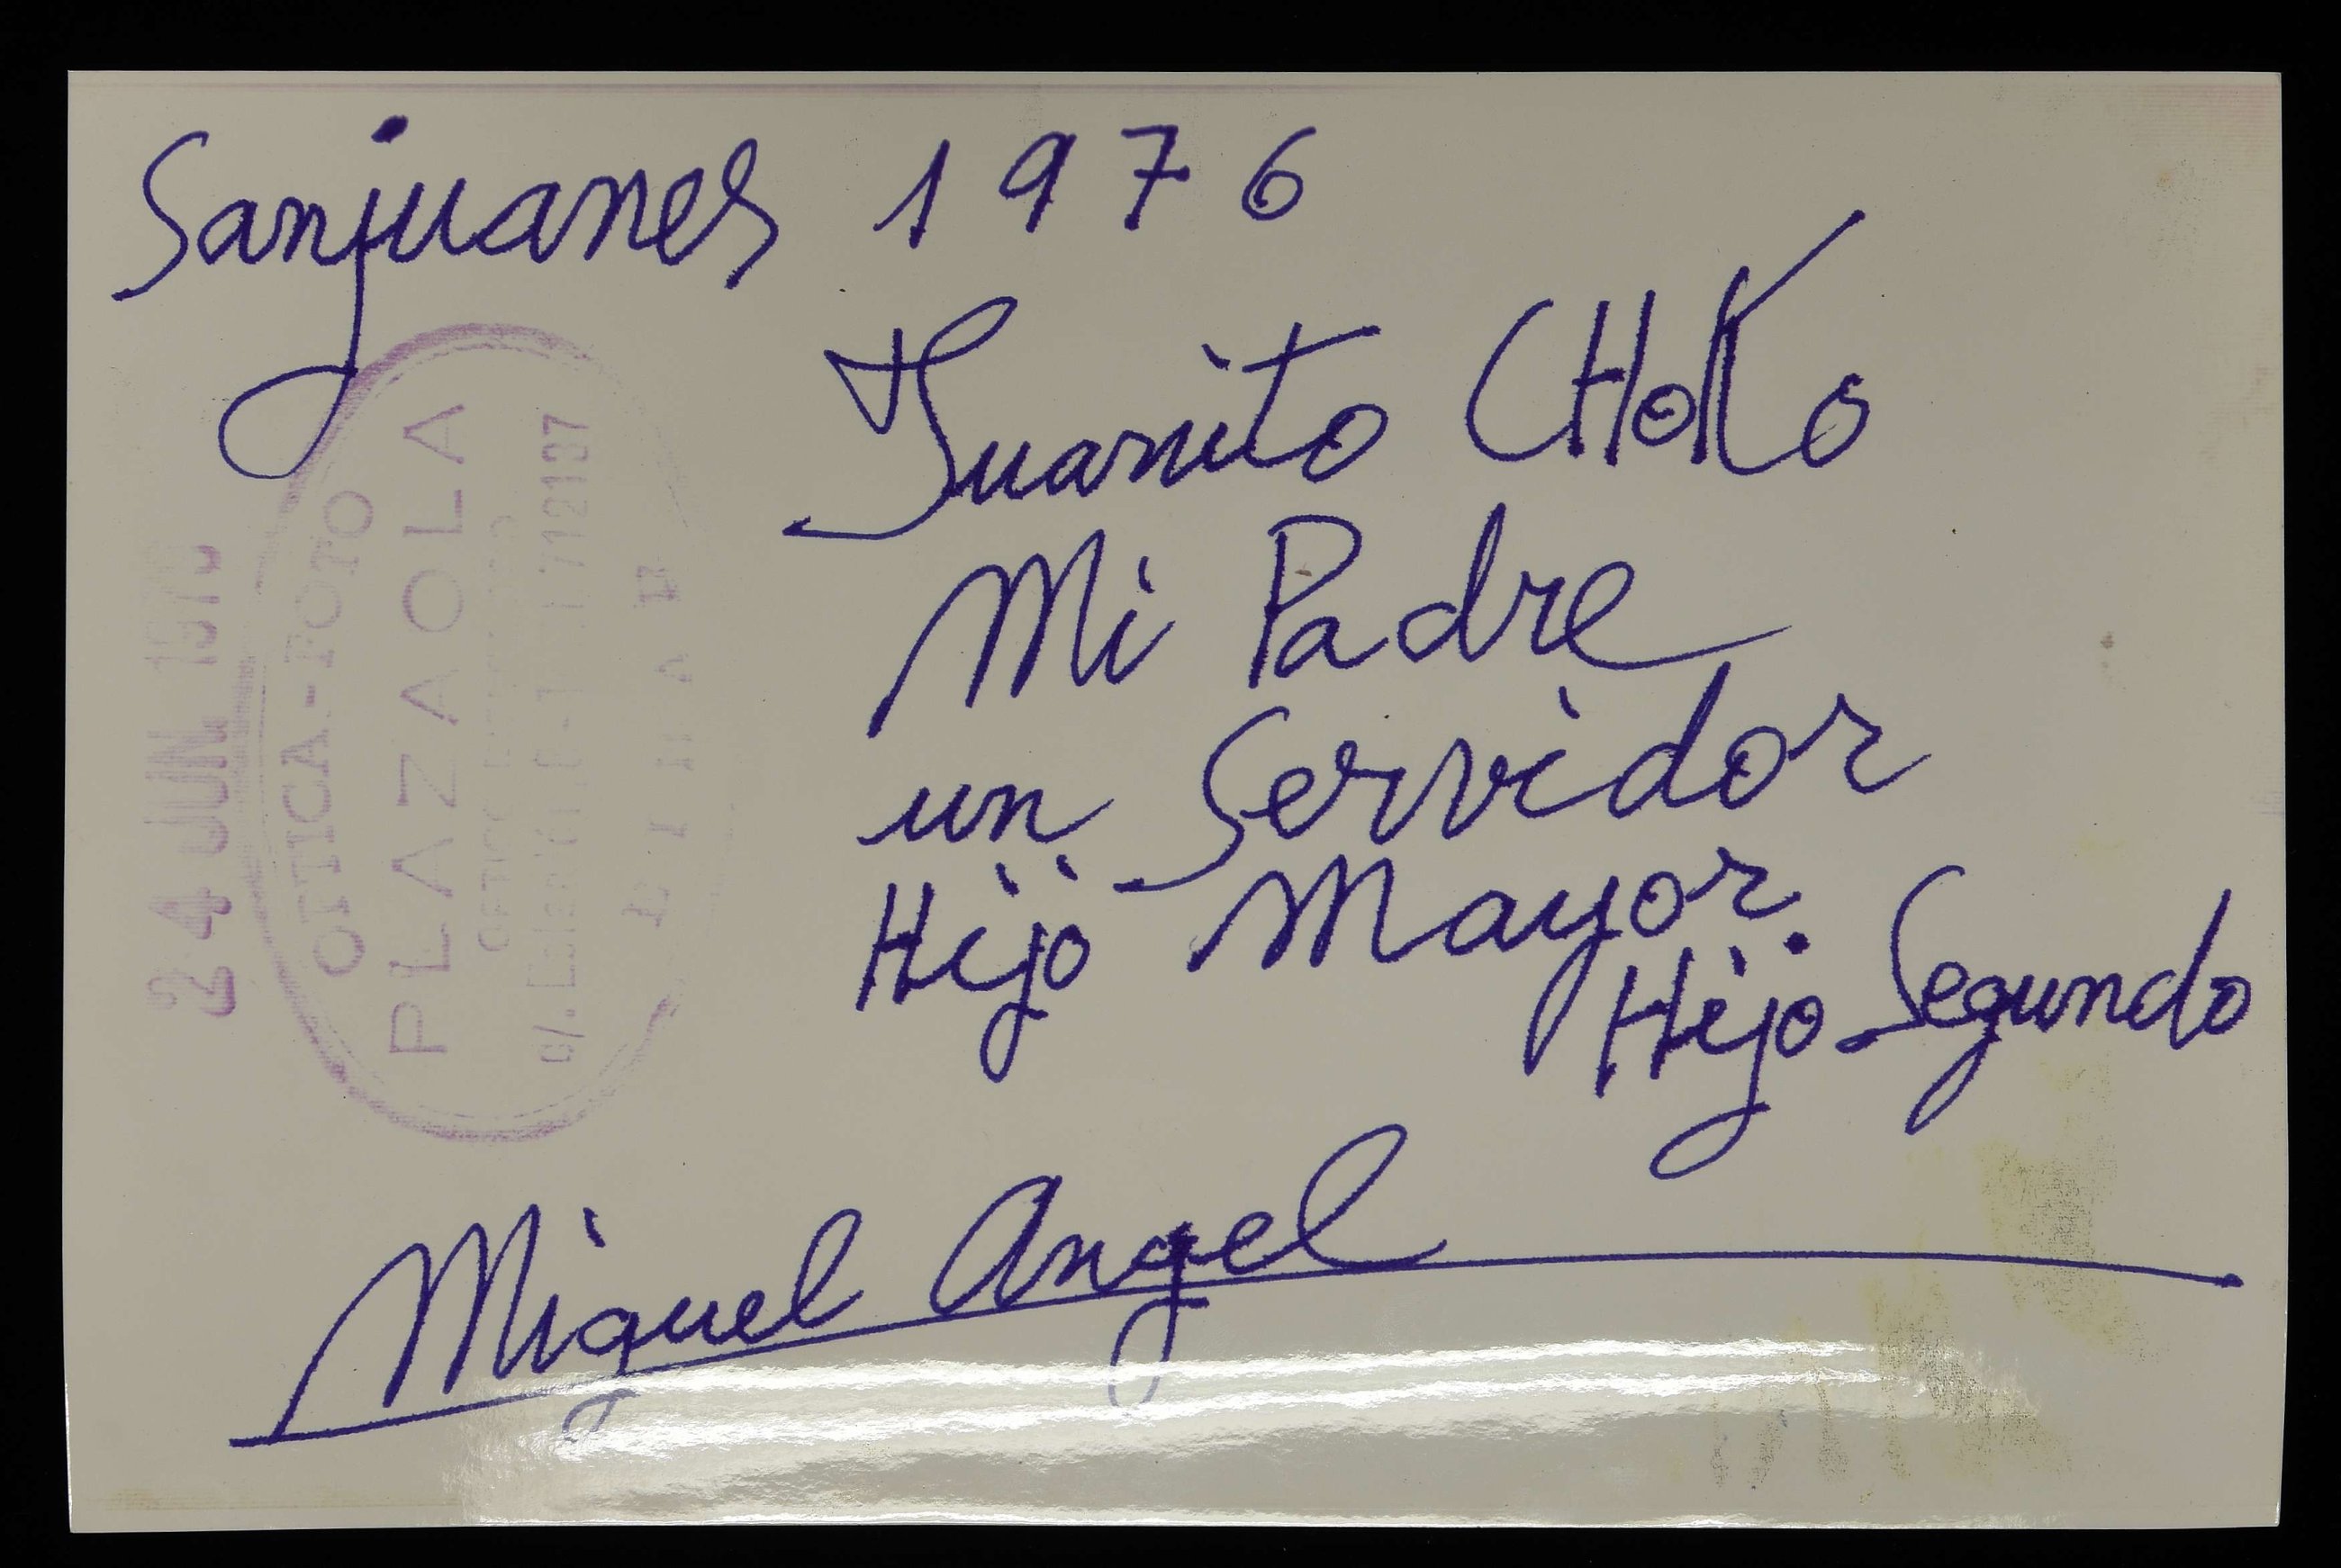 Sanjuanes 1976
Juanito CHoKo
Mi Padre
un Servidor
Hijo Mayor.
Hijo Segundo
Miguel Angel
24 JUN. 197
OPTICA-FOTO
PLAZAOLA